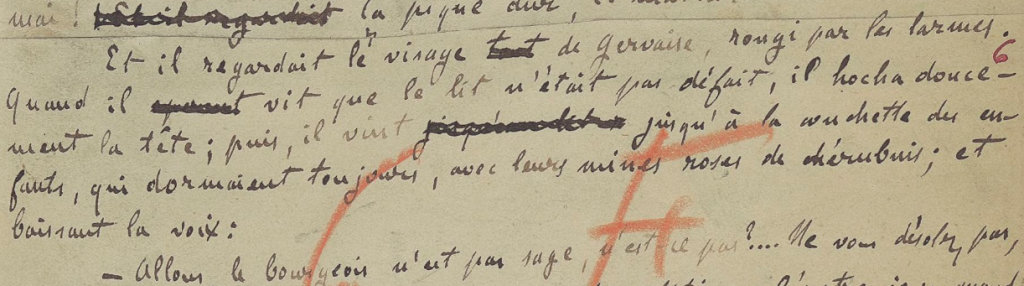 regardait la pique dur,
Et il regardait le visage tout de Gervaise, rougi par les larmes.
6
Quand il vit que le lit n'était pas défait, il hocha douce-
ment la tête ; puis, il vint jusqu'à la couchette des en-
fants, qui dormaient toujours, avec leurs mines roses de chérubins ; et
baissant la voix :
— Allons le bourgeois n'est pas sage, n'est-ce pas ?.... Ne vous désolez pas,